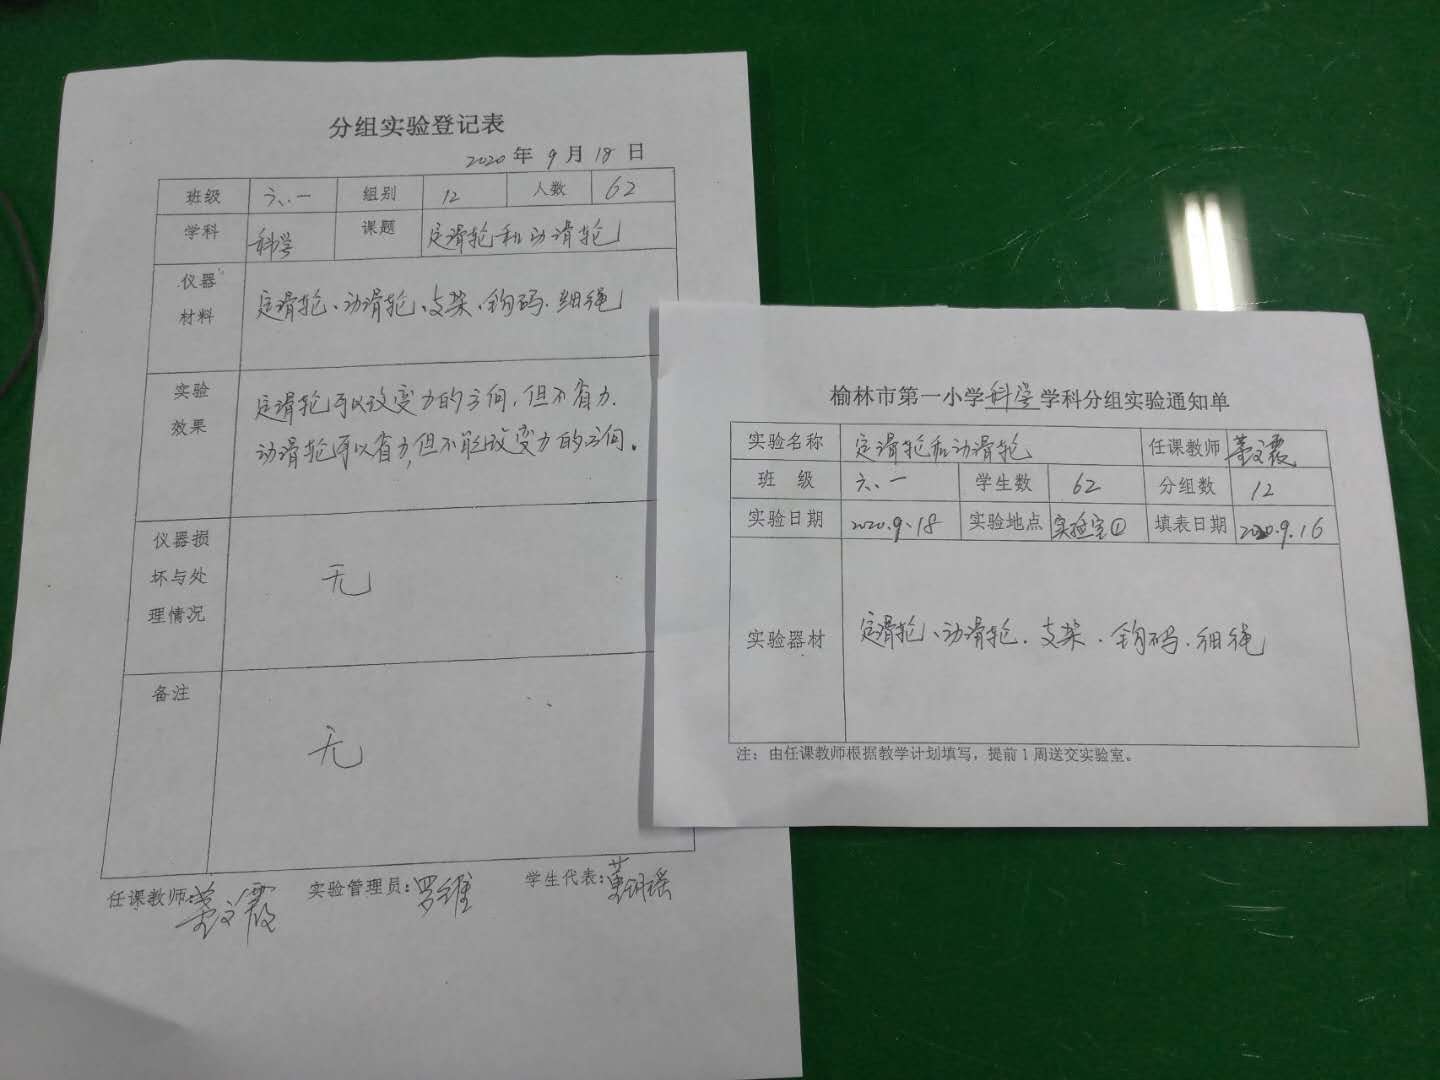 分组实验登记表
2020 年 9 月 18 日
班级 六、一 组别 12 人数 62
学科 科学 课题 定滑轮和动滑轮
仪器材料 定滑轮、动滑轮、支架、钩码、细绳
实验效果 定滑轮可以改变力的方向,但不省力.
动滑轮可以省力,但不能改变力的方向。
仪器损坏与处理情况 无
备注 无
任课教师: 实验管理员:罗维 学生代表:
榆林市第一小学科学学科分组实验通知单
实验名称 定滑轮和动滑轮 任课教师
班 级 六、一 学生数 62 分组数 12
实验日期 2020.9.18 实验地点 实验室① 填表日期 2020.9.16
实验器材 定滑轮、动滑轮.支架.钩码.细绳
注：由任课教师根据教学计划填写，提前1周送交实验室。